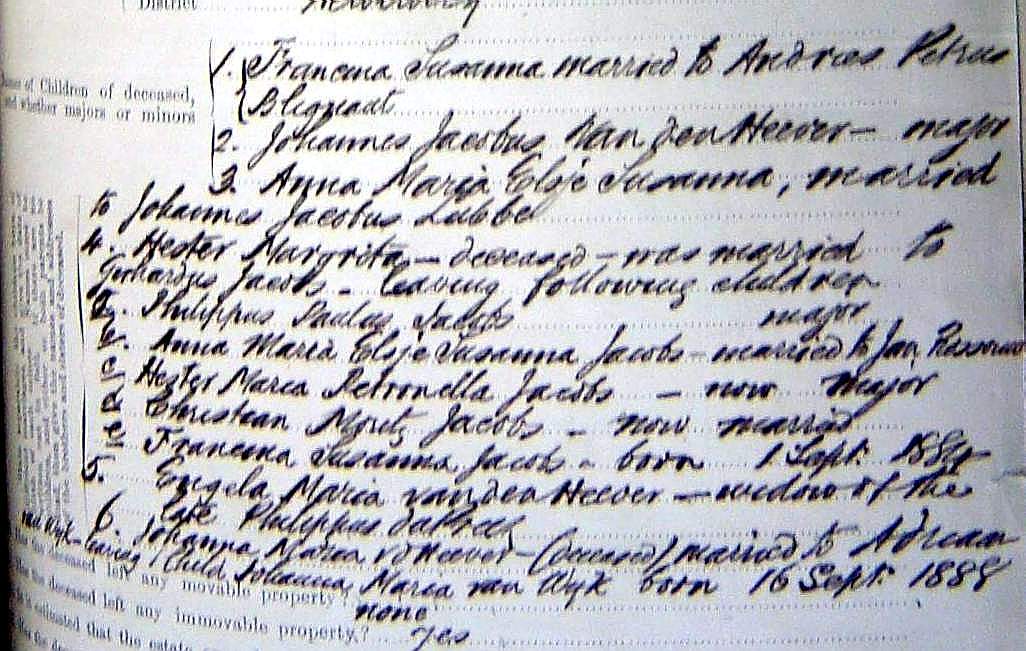 District
Names of Children of deceased,
and whether majors or minors
1. Francina Susanna married to Andries Petrus
Blignaut
2. Johannes Jacobus Van den Heever — major
3. Anna Maria Elsje Susanna, married
to Johannes Jacobus Lubbe
4. Hester Margrita — deceased — was married to
Gerhardus Jacobs — leaving following children
a. Philippus Paulus Jacobs major
b. Anna Maria Elsje Susanna Jacobs — married to Jan
c. Hester Maria Petronella Jacobs — now major
d. Christian Jacobs — now married
e. Francina Susanna Jacobs — born 1 Sept. 1884
5. Engela Maria van den Heever — widow of the
late Philippus
6. Johanna Maria vd Heever — (deceased) married to Adriaan
van Wyk — leaving 1 child Johanna Maria van Wyk born 16 Sept. 1888
Has the deceased left any movable property?
none
Has the deceased left any immovable property?
yes
estimated that the estate